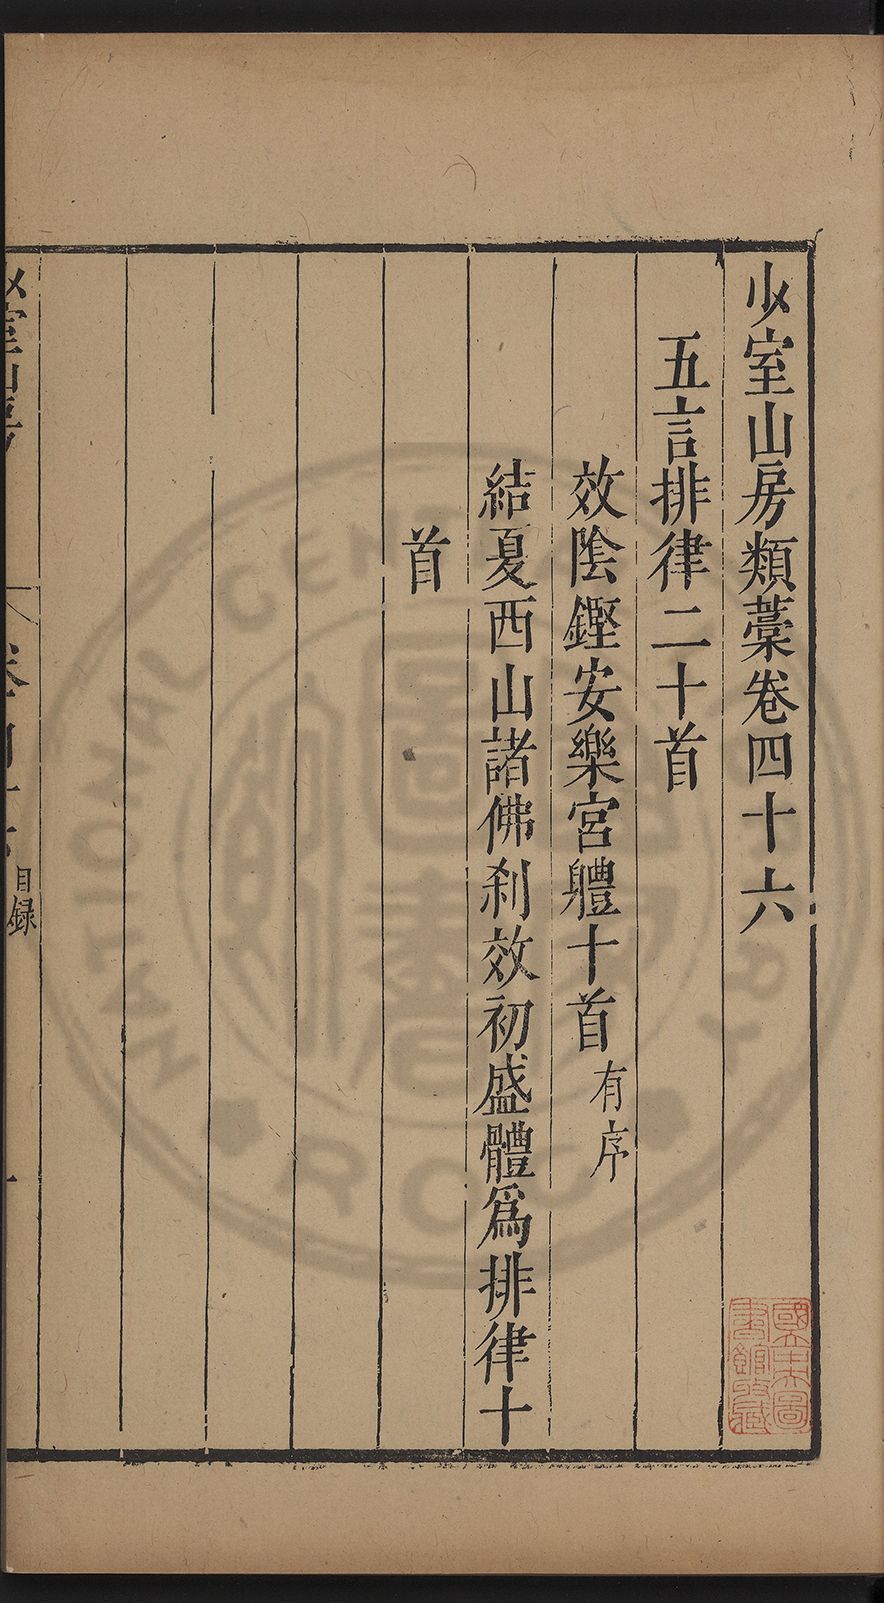 少室山房類藁卷四十六
五言排律二十首
效陰鏗安樂宮軆十首 有序
結夏西山諸佛刹效初盛體爲排律十
首
目録
國立中央圖書館收藏